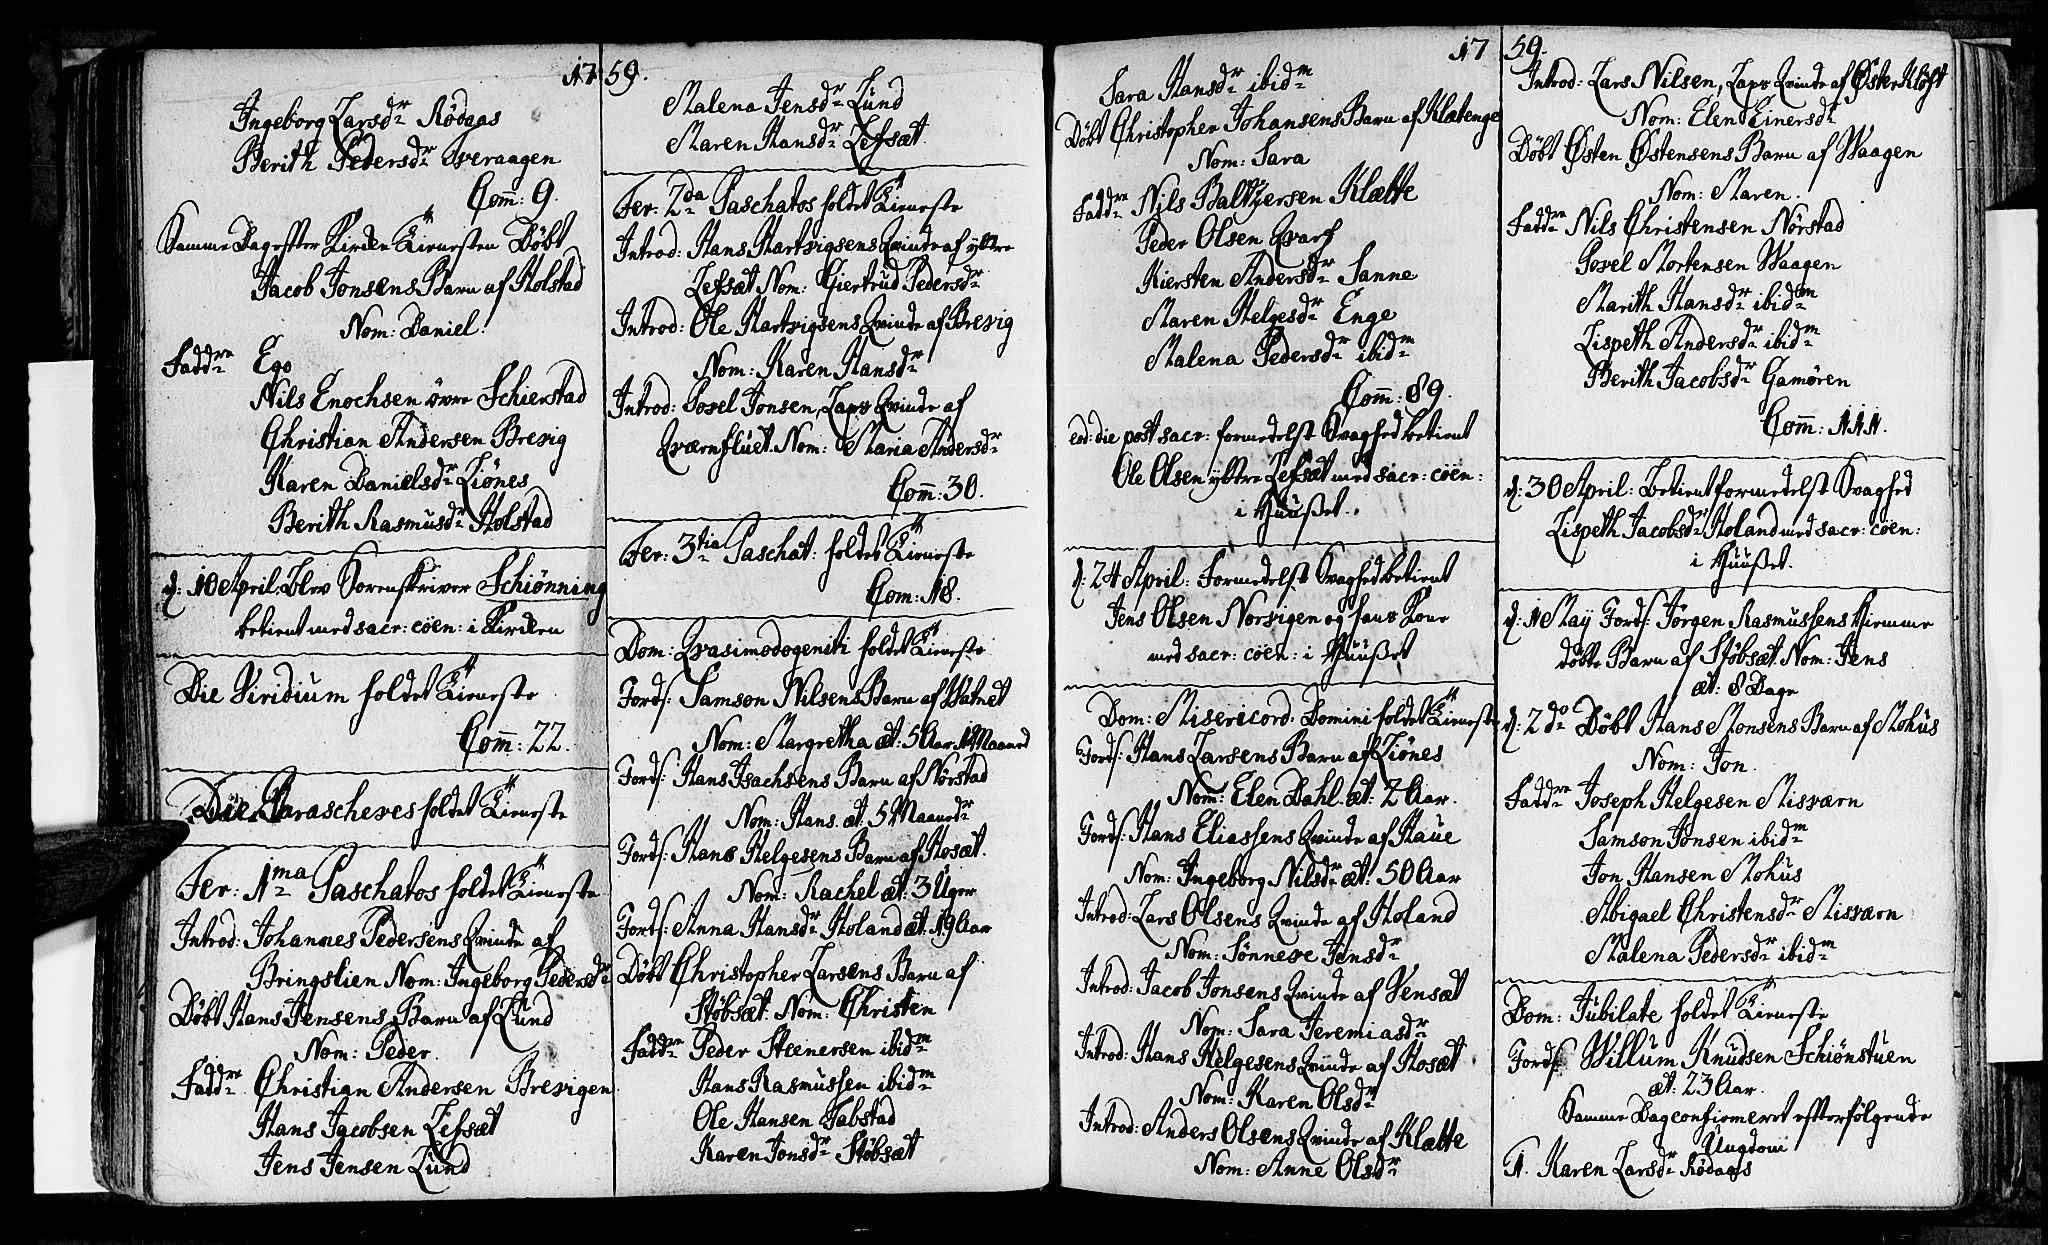 1759.
Ingeborg Larsdr Rødaas
Berith Pedersdr Tveraagen
Com̄: 9.
Samme Dag efter Kirche Tienesten Døbt
Jacob Jonsens Barn af Holstad
Nom: Daniel.
Faddre Ego
Nils Enochsen øvre Schierstad
Christian Andersen Brevig
Karen Danielsdr Liønes
Berith Rasmusdr Holstad
d: 10 April. blev Sorenskriver Schiønning
betient med sacr: coen: i Kirchen
Die Viridium holdet Tieneste
Com̄: 22.
Die Parascheves holdet Tieneste
Fer: 1ma Paschatos holdet Tieneste
Introd: Johannes Pedersens Qvinde af
Bringslien Nom: Ingeborg Pedersdr
Døbt Hans Jensens Barn af Lund
Nom: Peder.
Faddre Christian Andersen Brevigen
Hans Jacobsen Lefsæt
Jens Jensen Lund
Malena Jensdr Lund
Maren Hansdr Lefsæt.
Fer: 2da Paschatos holdet Tieneste
Introd: Hans Hartvigsens Qvinde af yttre
Lefsæt Nom: Giertrud Pedersdr
Introd: Ole Hartvigsens Qvinde af Brevig
Nom: Karen Hansdr
Introd: Povel Jonsen, Laps Qvinde af
Qværnfluet. Nom: Maria Andersdr
Com̄: 30.
Fer: 3tia Paschat: holdet Tieneste
Com: 18.
Dom: Qvasimodogeniti holdet Tieneste
Jords: Samson Nilsens Barn af Watnet
Nom: Margretha æt: 5 Aar 1 Maaned
Jords: Hans Isachsens Barn af Nørstad
Nom: Hans. æt. 5 Maandr
Jords: Hans Helgesens Barn af Hosæt.
Nom: Rachel æt: 3 Uger
Jords: Anna Hansdr Holand æt. 19 Aar
Døbt Christopher Larsens Barn af
Støbsæt. Nom: Christen
Faddre Peder Steenersen ibidm
Hans Rasmussen ibidm
Ole Hansen Tabstad
Karen Jonsdr Støbsæt
1759.
Sara Hansdr ibidm
Døbt Christopher Johansens Barn af Klætenge
Nom: Sara
Faddre Nils Baltzersen Klætte
Peder Olsen Qvarf
Kiersten Andersdr Sanne
Maren Helgesdr Enge
Malena Pedersdr ibidm
Com̄: 89.
eod: die post sacr: formedelst Svaghed betient
Ole Olsen yttre Lefsæt med sacr: coen:
i Huuset.
d: 24 April: Formedelst Svaghed betient
Jens Olsen Norvigen og hans Kone
med sacr: coen: i Huuset
Dom: Misericord. Domini holdet Tieneste
Jords: Hans Larsens Barn af Liønes
Nom: Elen Dahl. æt: 2 Aar.
Jords: Hans Eliassens Qvinde af Haue
Nom: Ingeborg Nilsdr æt: 50 Aar
Introd: Lars Olsens Qvinde af Holand
Nom: Sønneve Jensdr
Introd: Jacob Jonsens Qvinde af Vensæt
Nom: Sara Jeremiasdr
Introd: Hans Helgesens Qvinde af Hosæt
Nom: Karen Olsdr
Introd: Anders Olsens Qvinde af Klætte
Nom: Anne Olsdr
Introd: Lars Nilsen, Laps Qvinde af Øster Kløft
Nom: Elen Einersdr
Døbt Østen Østensens Barn af Waagen
Nom: Maren.
Faddre Nils Christensen Nørstad
Povel Mortensen Waagen
Marith Hansdr ibidm
Lispeth Andersdr ibidm
Berith Jacobsdr Gamøren
Com̄: 111.
d: 30 April: betient formedelst Svaghed
Lispeth Jacobsdr Holand med sacr: coen:
i Huuset.
d: 1 May Jords: Jørgen Rasmussens hiemme
døbte Barn af Støbsæt. Nom: Jens
æt: 8 Dage
d: 2do Døbt Hans Monsens Barn af Mohus
Nom: Jon.
Faddre Joseph Helgesen Misværn
Samson Jonsen ibidm
Jon Hansen Mohus
Abigael Christensdr Misværn
Malena Pedersdr ibidm
Dom: Jubilate holdet Tieneste
Jords: Willum Knudsen Schiønstuen
æt. 23 Aar.
Samme Dag confirmeret efterfølgende
Ungdom
1. Karen Larsdr Rødaas